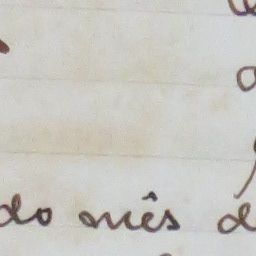 do mês d